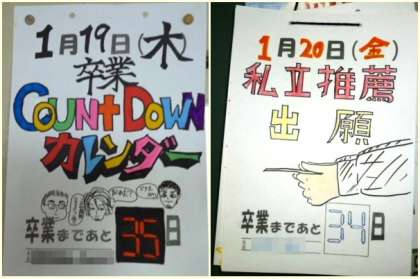 1月19日(木)
卒業
COUNTDOWN
カレンダー
卒業まであと 35日
1月20日(金)
私立推薦
出願
卒業まであと 34日